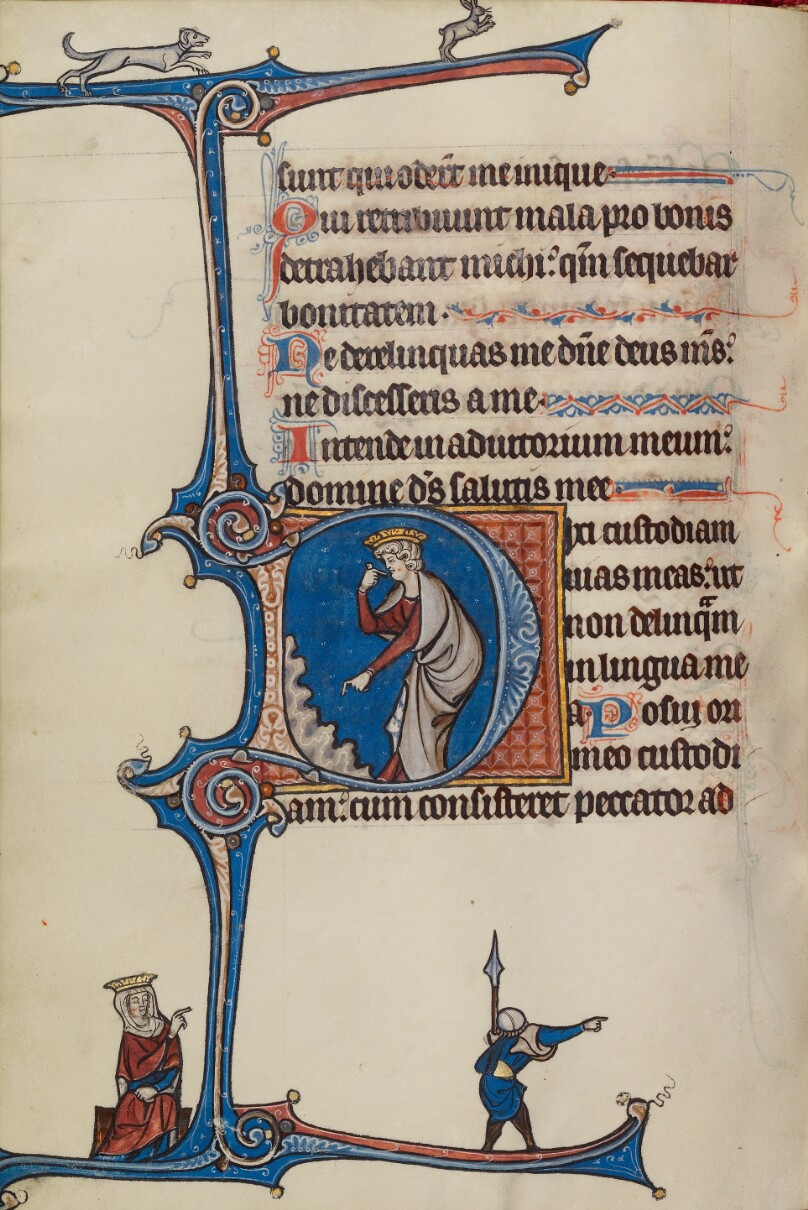 sunt qui oder̄t me inique
Qui retribuunt mala pro bonis
detrahebant michi: qm̄ sequebar
bonitatem.
Ne derelinquas me dn̄e deus ms̄:
ne discesseris a me.
Intende in adiutorium meum:
domine ds̄ salutis mee
Dixi custodiam
uias meas: ut
non delinqam
in lingua me
a Posui ori
meo custodi
am: cum consisteret peccator ad